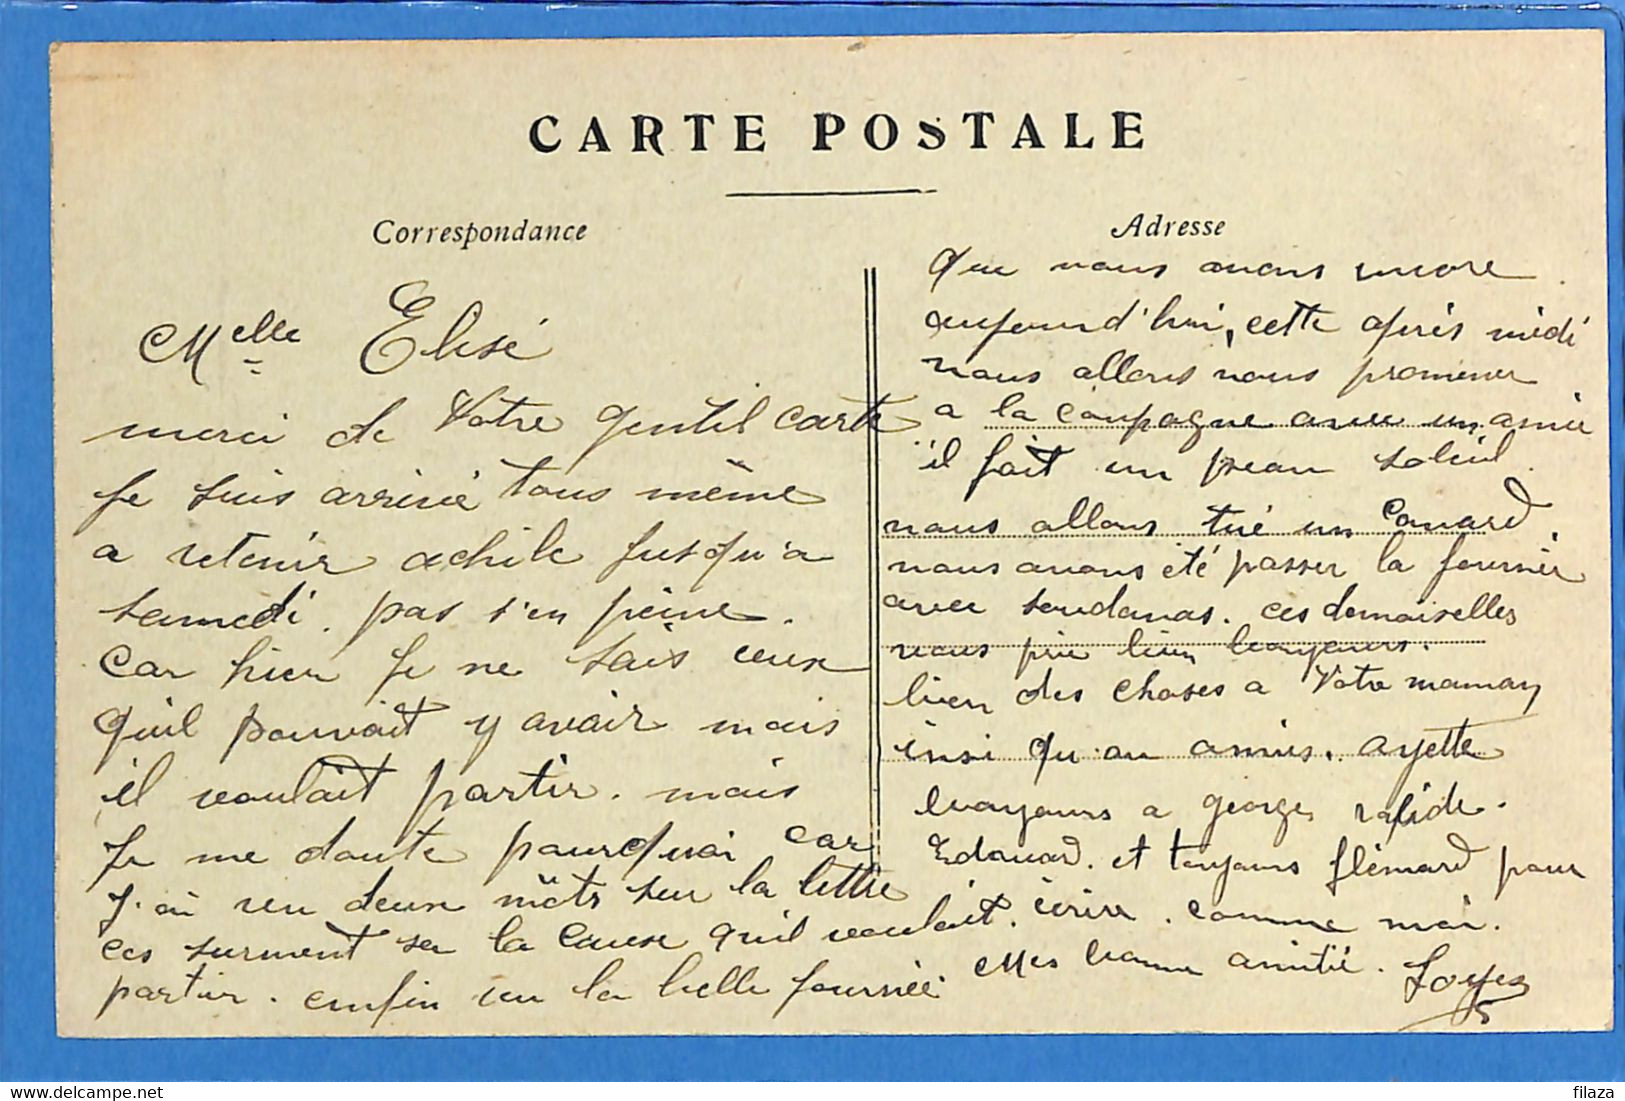 CARTE POSTALE
Correspondance
Melle Elisé
merci de Votre gentil carte
Je suis arrivé tous même
a retenir achile jusqu'a
samedi. pas s'en peine.
car hier Je ne sais ceux
quil pouvait y avair mais
il voulait partir. mais
Je me doute pourquoi car
J. ai veu deux môts sur la lettre
ces surment sa la cause quil voulait
partir. enfin vu la belle fournéé
Adresse
que nous avons encore
aujourd'hui, cette aprés midi
nous allons nous promener
a la campagne avec un amie
il fait un beau soleil.
nous allons tué un Canard
nous avons été passer la fournér
avec soudanas. ces demaiselles
vous bien toujours.
bien des choses a Votre maman
insi qu'au amies. ayette
toujours a georges
Edouard. et toujours flémard pour
écrire. comme moi.
Mes bonne amitié.
filaza
delcampe.net